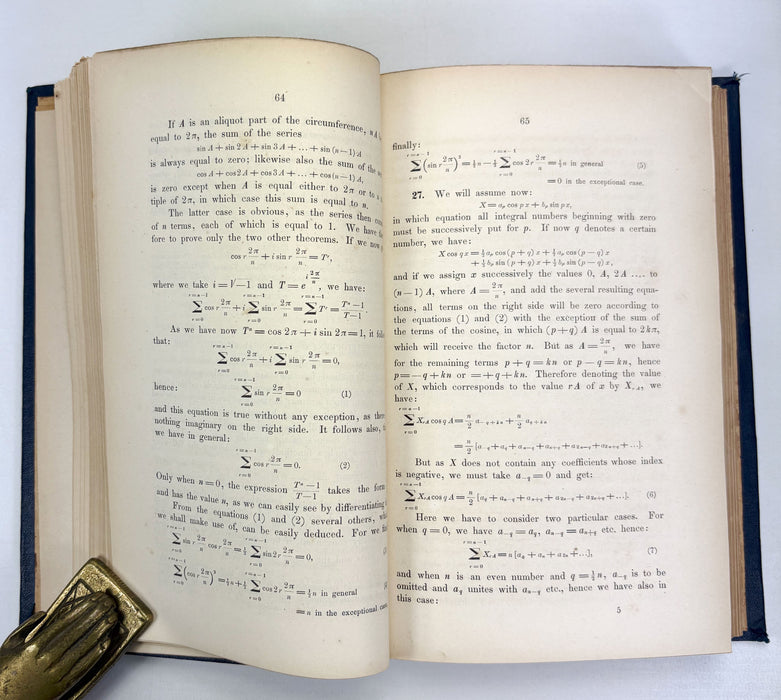 64
If A is an aliquot part of the circumference, n A
equal to 2π, the sum of the series
sin A + sin 2 A + sin 3 A + ... + sin (n − 1) A
is always equal to zero; likewise also the sum of the
cos A + cos 2 A + cos 3 A + ... + cos (n − 1) A,
is zero except when A is equal either to 2π or to a
tiple of 2π, in which case this sum is equal to n.
The latter case is obvious, as the series then
of n terms, each of which is equal to 1. We have
fore to prove only the two other theorems. If we now
cos r 2π/n + i sin r 2π/n = Tʳ,
where we take i = √−1 and T = e^(i 2π/n), we have:
∑_{r=0}^{r=n−1} cos r 2π/n + i ∑_{r=0}^{r=n−1} sin r 2π/n = ∑_{r=0}^{r=n−1} Tʳ = (Tⁿ − 1)/(T − 1)
As we have now Tⁿ = cos 2π + i sin 2π = 1, it
that:
∑_{r=0}^{r=n−1} cos r 2π/n + i ∑_{r=0}^{r=n−1} sin r 2π/n = 0,
hence:
∑_{r=0}^{r=n−1} sin r 2π/n = 0 (1)
and this equation is true without any exception, as there
nothing imaginary on the right side. It follows also,
we have in general:
∑_{r=0}^{r=n−1} cos r 2π/n = 0. (2)
Only when n = 0, the expression (Tⁿ − 1)/(T − 1) takes the form
and has the value n, as we can easily see by differentiating
From the equations (1) and (2) several others,
we shall make use of, can be easily deduced. For we
∑_{r=0}^{r=n−1} sin r 2π/n cos r 2π/n = ½ ∑_{r=0}^{r=n−1} sin 2r 2π/n = 0,
∑_{r=0}^{r=n−1} (cos r 2π/n)² = ½ n + ½ ∑_{r=0}^{r=n−1} cos 2r 2π/n = ½ n in general
= n in the exceptional case
65
finally:
∑_{r=0}^{r=n−1} (sin r 2π/n)² = ½ n − ½ ∑_{r=0}^{r=n−1} cos 2r 2π/n = ½ n in general (5)
= 0 in the exceptional case.
27. We will assume now:
X = aₚ cos p x + bₚ sin p x,
in which equation all integral numbers beginning with zero
must be successively put for p. If now q denotes a certain
number, we have:
X cos q x = ½ aₚ cos (p + q) x + ½ aₚ cos (p − q) x
+ ½ bₚ sin (p + q) x + ½ bₚ sin (p − q) x,
and if we assign x successively the values 0, A, 2 A .... to
(n − 1) A, where A = 2π/n, and add the several resulting equa-
tions, all terms on the right side will be zero according to
the equations (1) and (2) with the exception of the sum of
the terms of the cosine, in which (p + q) A is equal to 2kπ,
which will receive the factor n. But as A = 2π/n, we have
for the remaining terms p + q = kn or p − q = kn, hence
p = − q + kn or = + q + kn. Therefore denoting the value
of X, which corresponds to the value rA of x by X_{rA}, we
have:
∑_{r=0}^{r=n−1} X_{rA} cos q A = n/2 a_{−q+kn} + n/2 a_{q+kn}
= n/2 [a_{−q} + a_q + a_{n−q} + a_{n+q} + a_{2n−q} + a_{2n+q} + ...].
But as X does not contain any coefficients whose index
is negative, we must take a_{−q} = 0 and get:
∑_{r=0}^{r=n−1} X_{rA} cos q A = n/2 [a_q + a_{n−q} + a_{n+q} + a_{2n−q} + a_{2n+q} + ...]. (6)
Here we have to consider two particular cases. For
when q = 0, we have a_{−q} = a_q, a_{n−q} = a_{n+q} etc. hence:
∑_{r=0}^{r=n−1} X_{rA} = n [a_q + a_n + a_{2n} + ...], (7)
and when n is an even number and q = ½ n, a_{−q} is to be
omitted and a_q unites with a_{n−q} etc., hence we have also in
this case:
5